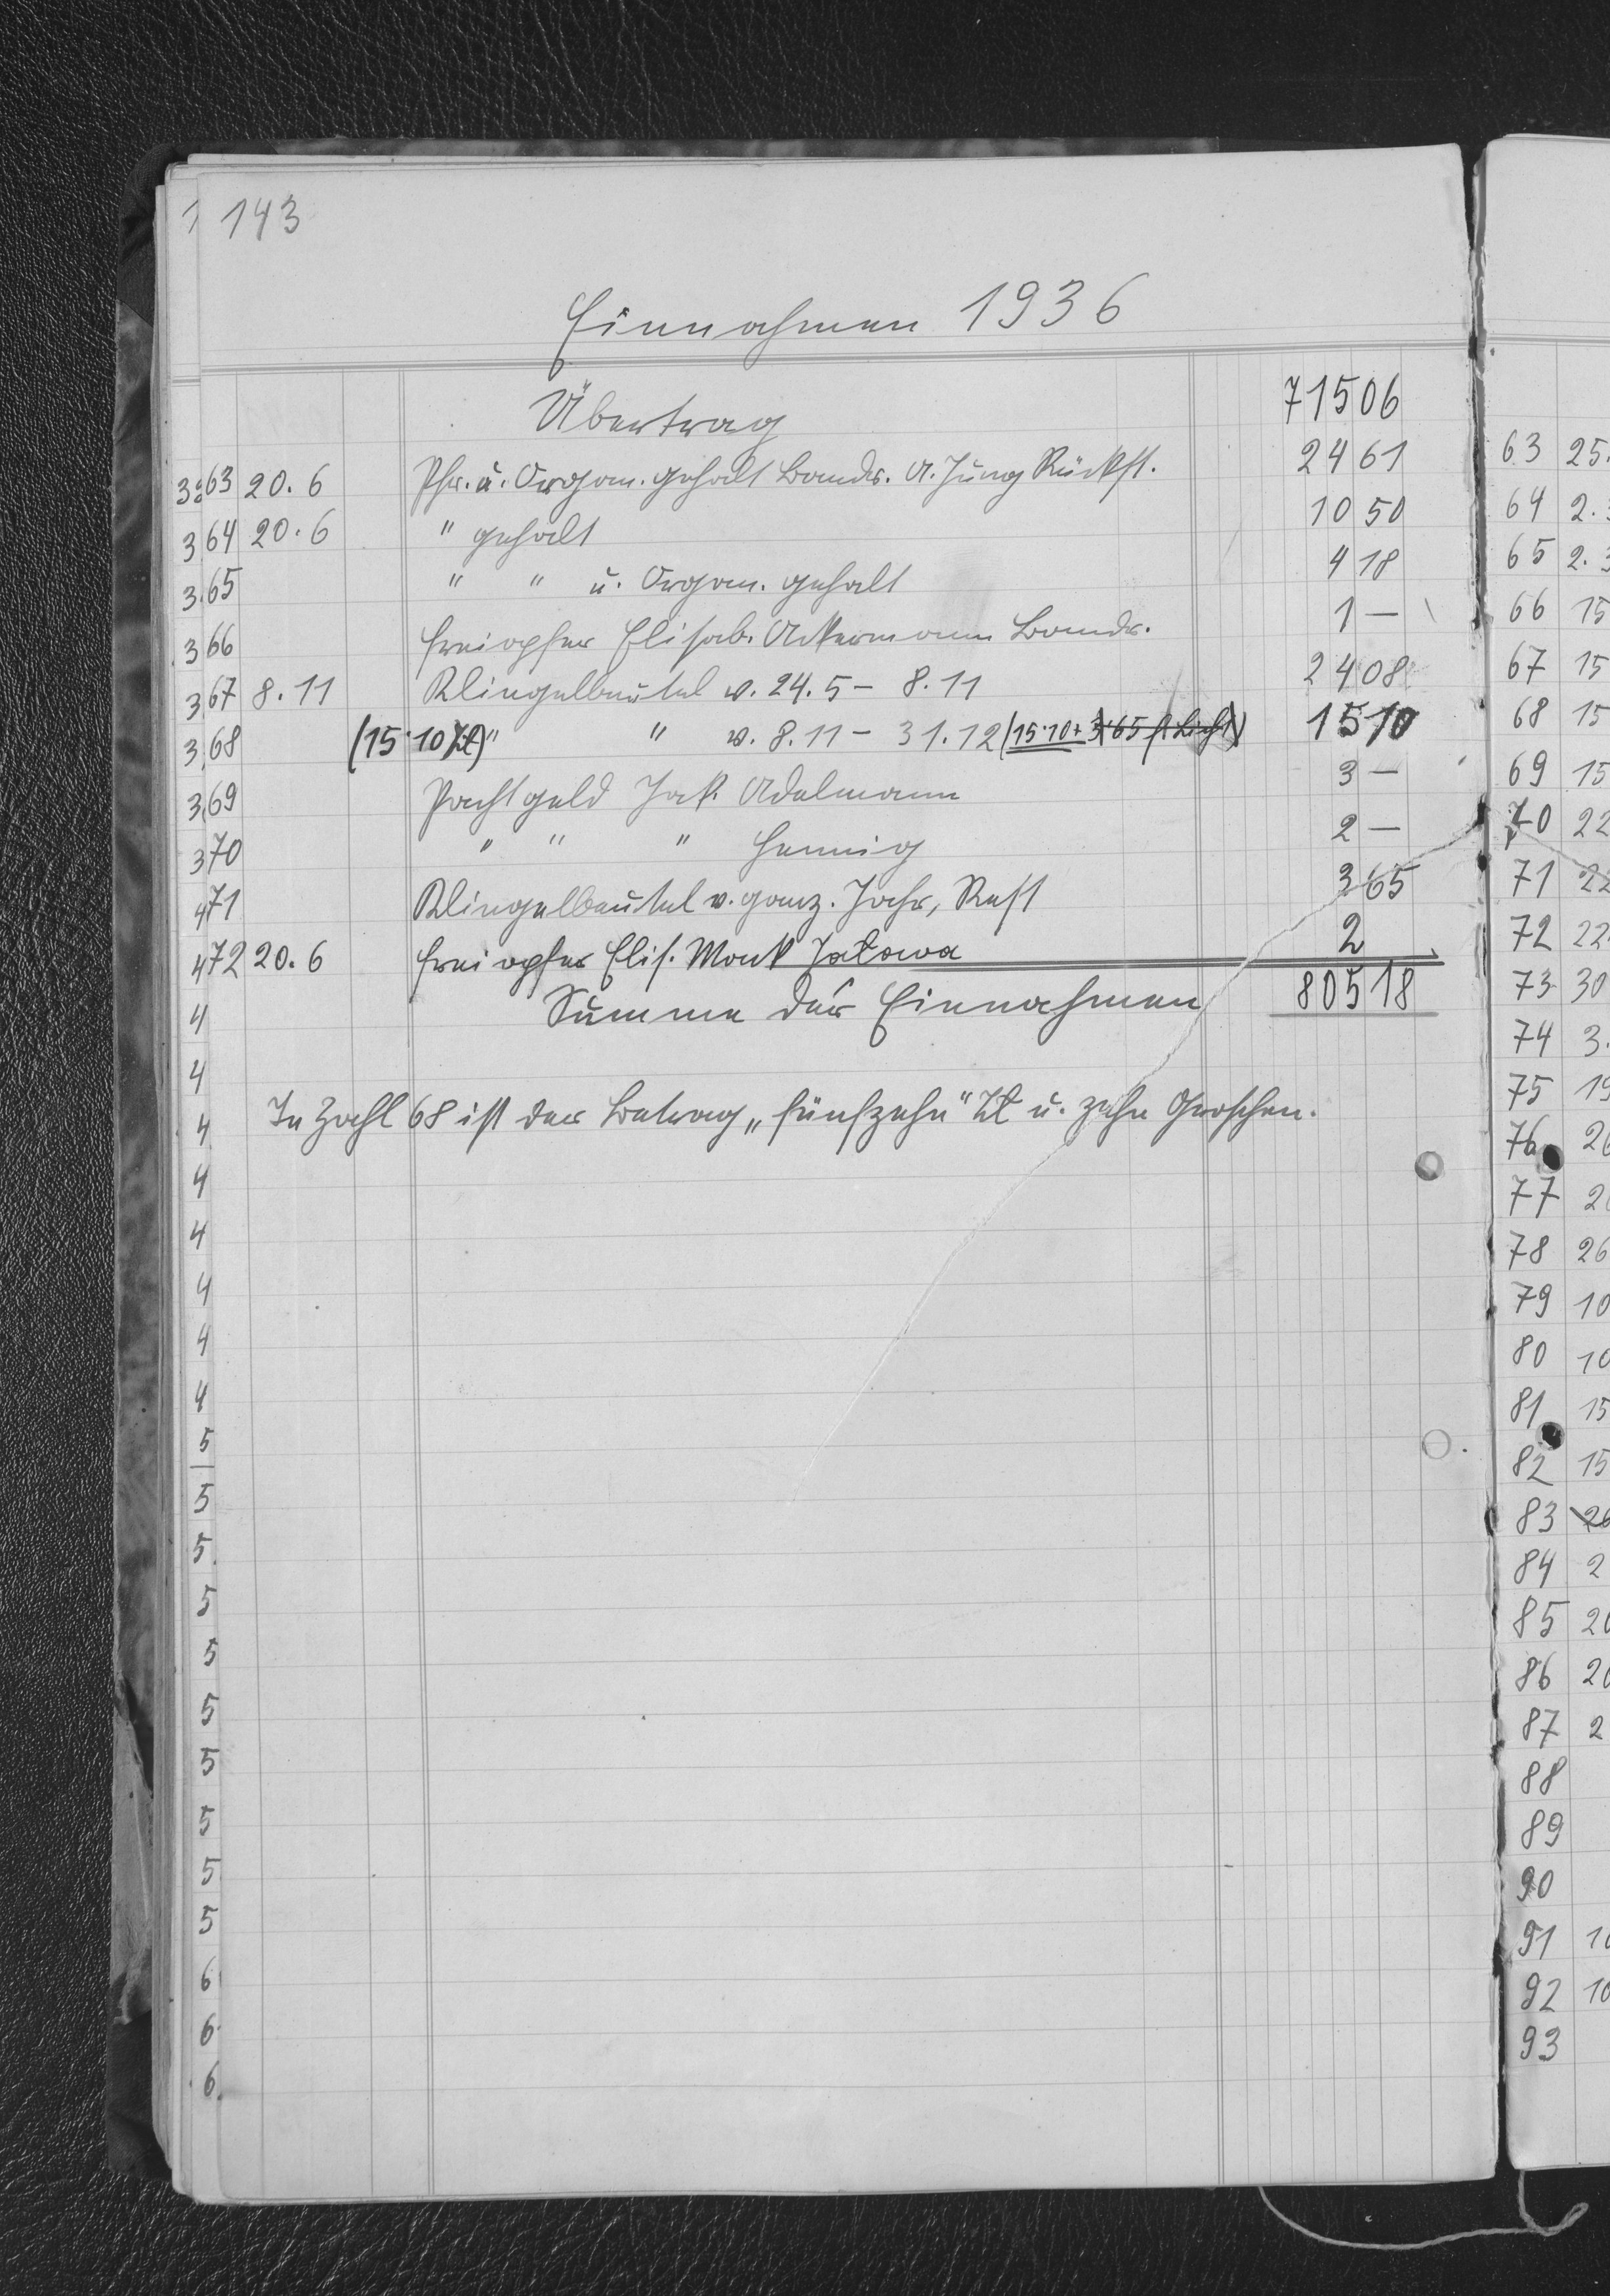 143
Einnahmen 1936
Übertrag 715 06
63 20.6 Pfr. u. Organ. gehalt Bandr. A. Jung Rückst. 24 61
64 20.6 " gehalt 10 50
65 " " u. Organ. gehalt 4 18
66 Freiopfer Elisab. Ackermann Bandr. 1 —
67 8.11 Klingelbeutel v. 24.5 - 8.11 24 08
68 (15.10 Zł) " " v. 8.11 - 31.12 (15.10 + 3.65 f. Licht) 15 10
69 Pachtgeld Jak. Adelmann 3 —
70 " " " Hennig 2 —
71 Klingelbeutel v. ganz. Jahr, Rest 3 65
72 20.6 Freiopfer Elis. Mauk Jatowa 2
Summe der Einnahmen 805 18
In Zahl 68 ist der Betrag „fünfzehn" Zł u. zehn Groschen.
63 25.
64 2.
65 2.3
66 15
67 15
68 15
69 15
70 22
71 22
72 22.
73 30
74 3.
75 19
76 26
77 2
78 26
79 10
80 10
81 15
82 15
83 26
84 2
85 20
86 20
87 2
88
89
90
91 10
92 10
93